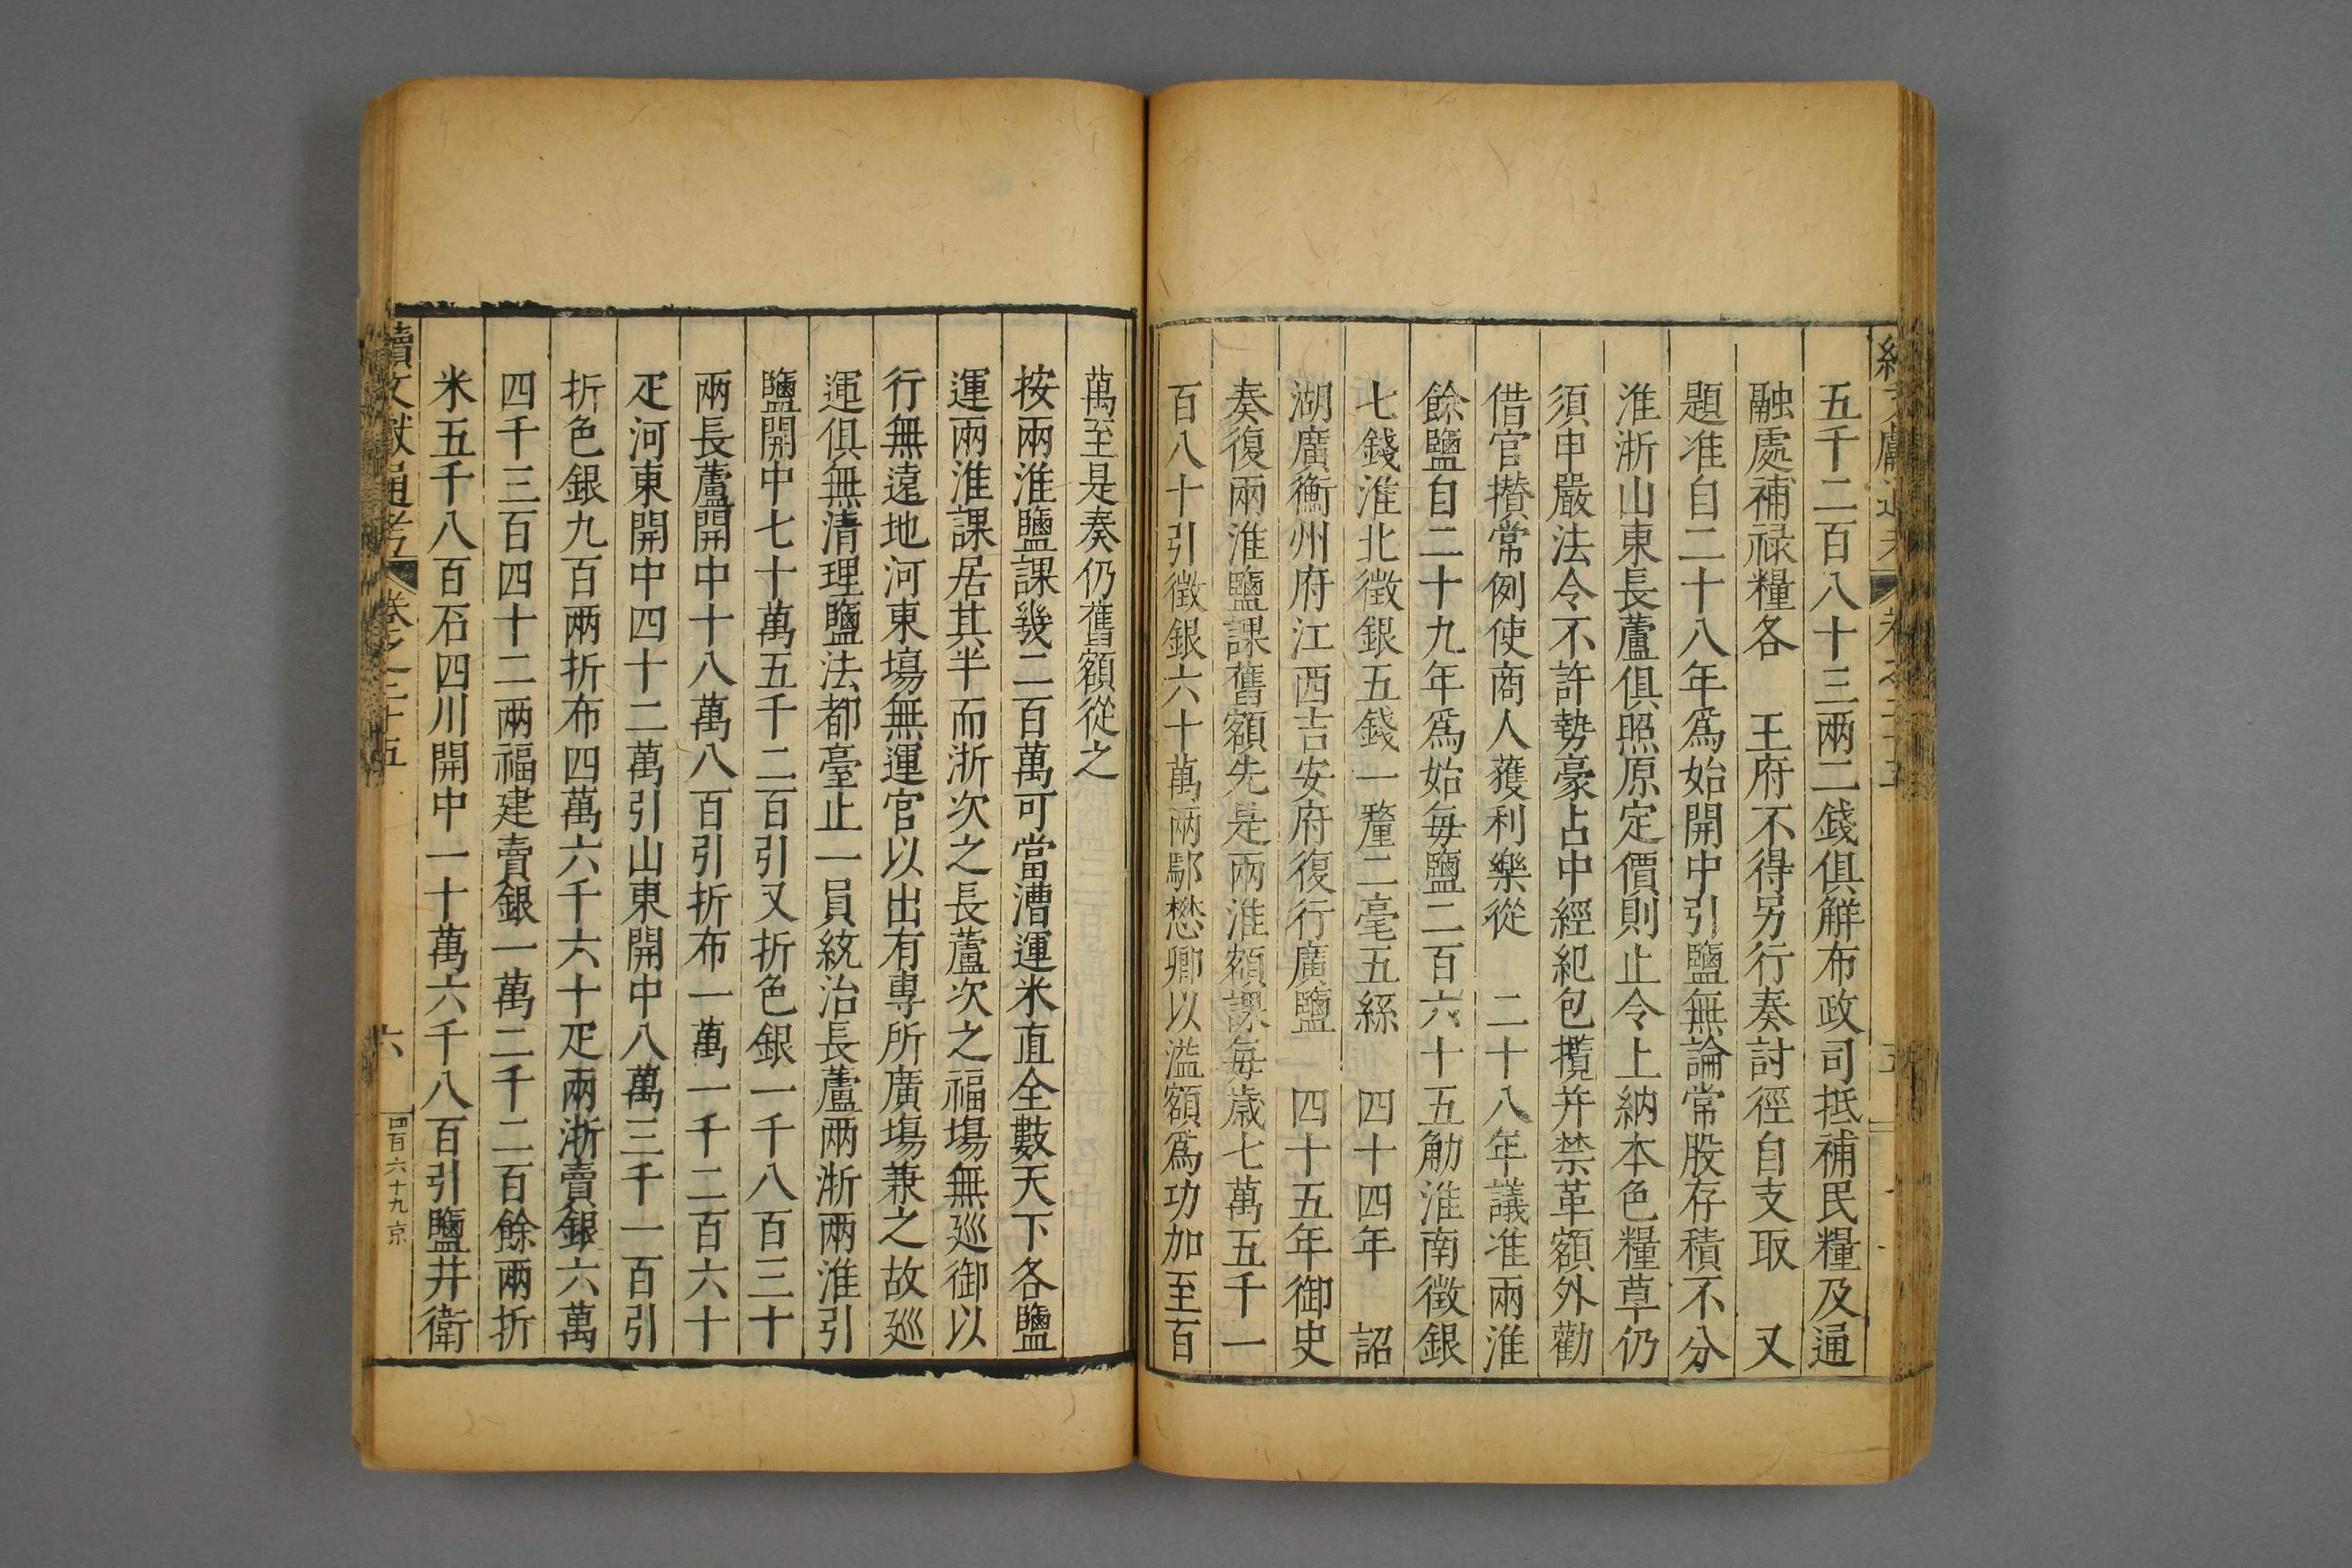 五千二百八十三兩二錢俱解布政司抵補民糧及通
融處補祿糧各　王府不得另行奏討徑自支取　又
題准自二十八年爲始開中引鹽無論常股存積不分
淮浙山東長蘆俱照原定價則止令上納本色糧草仍
須申嚴法令不許勢豪占中經紀包攬幷禁革額外勸
借官攅常例使商人獲利樂從　二十八年議准兩淮
餘鹽自二十九年爲始每鹽二百六十五觔淮南徵銀
七錢淮北徵銀五錢一釐二毫五絲　四十四年　詔
湖廣衡州府江西吉安府復行廣鹽　四十五年御史
奏復兩淮鹽課舊額先是兩淮額課每歲七萬五千一
百八十引徵銀六十萬兩鄢懋卿以溢額爲功加至百
萬至是奏仍舊額從之
按兩淮鹽課幾二百萬可當漕運米直全數天下各鹽
運兩淮課居其半而浙次之長蘆次之福塲無廵御以
行無遠地河東塲無運官以出有專所廣塲兼之故廵
運俱無清理鹽法都臺止一員統治長蘆兩浙兩淮引
鹽開中七十萬五千二百引又折色銀一千八百三十
兩長蘆開中十八萬八百引折布一萬一千二百六十
疋河東開中四十二萬引山東開中八萬三千一百引
折色銀九百兩折布四萬六千六十疋兩浙賣銀六萬
四千三百四十二兩福建賣銀一萬二千二百餘兩折
米五千八百石四川開中一十萬六千八百引鹽井衛
續文獻通考　卷之二十五　六　四百六十九　京